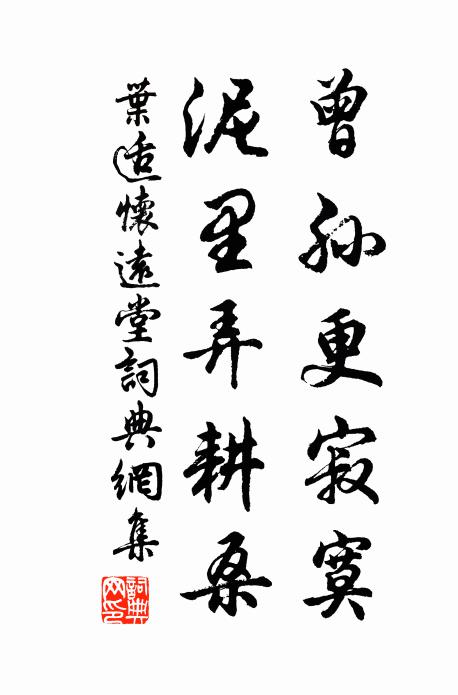 曾孙更寂寞
泥里弄耕桑
葉适懷遠堂詞典網集
詞典網印